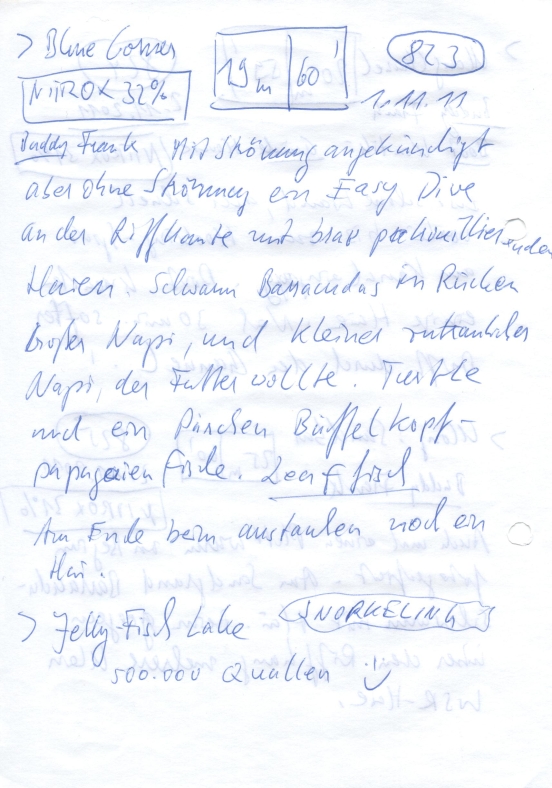 > Blue Corner
19m 60' 823
NITROX 32%
1.11.11
Buddy Frank Mit Strömung angekündigt
aber ohne Strömung ein Easy Dive
an der Riffkante mit brav patrouillierenden
Haien. Schwarm Barracudas im Rücken
Großer Napi, und kleiner zutraulicher
Napi, der Futter wollte. Turtle
und ein Pärchen Büffelkopf-
papageien Fische. Leaf fisch
Am Ende beim austauchen noch ein
Hai.
> Jelly Fish Lake SNORKELING
500.000 Quallen :)